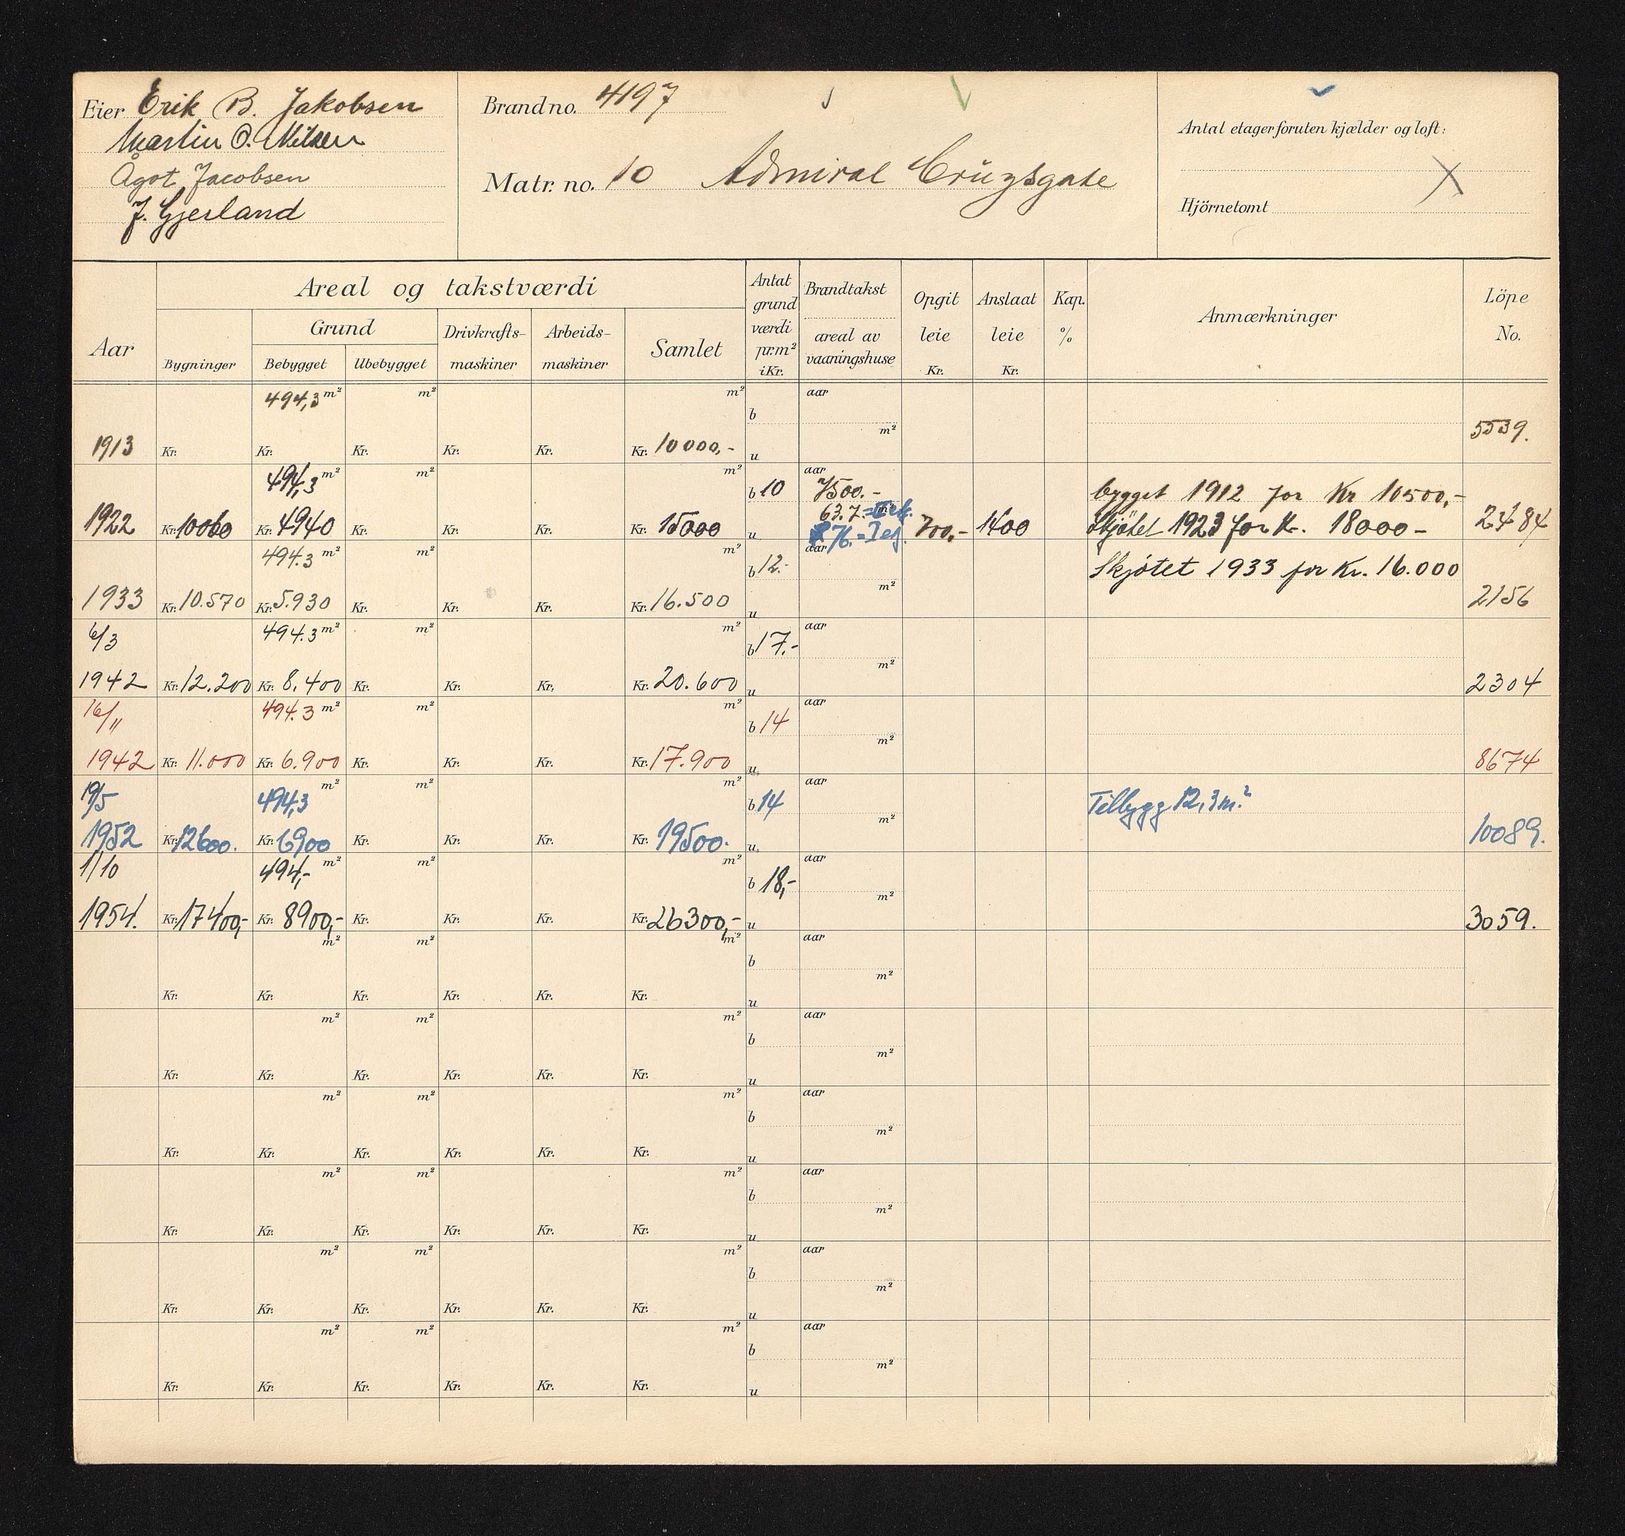 Eier Erik B. Jakobsen
Martin O. Nilsen
Agot Jacobsen
J. Gjerland
Brand no. 4197
Matr. no. 10 Admiral Cruysgate
Antal etager foruten kjælder og loft:
Hjörnetomt
Aar
Areal og takstværdi
Grund
Bygninger
Bebygget
Ubebygget
Drivkrafts-
maskiner
Arbeids-
maskiner
Samlet
Antat
grund
værdi
pr.m²
i Kr.
Brandtakst
areal av
vaaningshuse
Opgit
leie
Kr.
Anslaat
leie
Kr.
Kap.
%
Anmærkninger
Löpe
No.
494,3 m² m² m² b aar
1913 Kr. Kr. Kr. Kr. Kr. Kr. 10000,- u m² 5539.
494,3 m² m² m² b 10 aar 7500.- bygget 1912 for Kr 10500,-
63.7.
1922 Kr. 10060 Kr. 4940 Kr. Kr. Kr. Kr. 15000 u 76. 700,- 1400 Skjötet 1923 for Kr. 18000- 2484
494.3 m² m² m² b 12.- aar Skjøtet 1933 for Kr. 16.000
1933 Kr. 10.570 Kr. 5.930 Kr. Kr. Kr. Kr. 16.500 u m² 2156
6/3 494.3 m² m² m² b 17.- aar
1942 Kr. 12.200 Kr. 8.400 Kr. Kr. Kr. Kr. 20.600 u m² 2304
16/11 494.3 m² m² m² b 14 aar
1942 Kr. 11.000 Kr. 6.900 Kr. Kr. Kr. Kr. 17.900 u m² 8674
19/5 494,3 m² m² m² b 14 aar Tilbygg 12,3 m.²
1952 Kr. 12600. Kr. 6900 Kr. Kr. Kr. Kr. 19500. u m² 10089.
1/10 494,- m² m² m² b 18,- aar
1954. Kr. 17400,- Kr. 8900,- Kr. Kr. Kr. Kr. 26300,- u m² 3059.
m² m² m² b aar
Kr. Kr. Kr. Kr. Kr. Kr. u m²
m² m² m² b aar
Kr. Kr. Kr. Kr. Kr. Kr. u m²
m² m² m² b aar
Kr. Kr. Kr. Kr. Kr. Kr. u m²
m² m² m² b aar
Kr. Kr. Kr. Kr. Kr. Kr. u m²
m² m² m² b aar
Kr. Kr. Kr. Kr. Kr. Kr. u m²
m² m² m² b aar
Kr. Kr. Kr. Kr. Kr. Kr. u m²